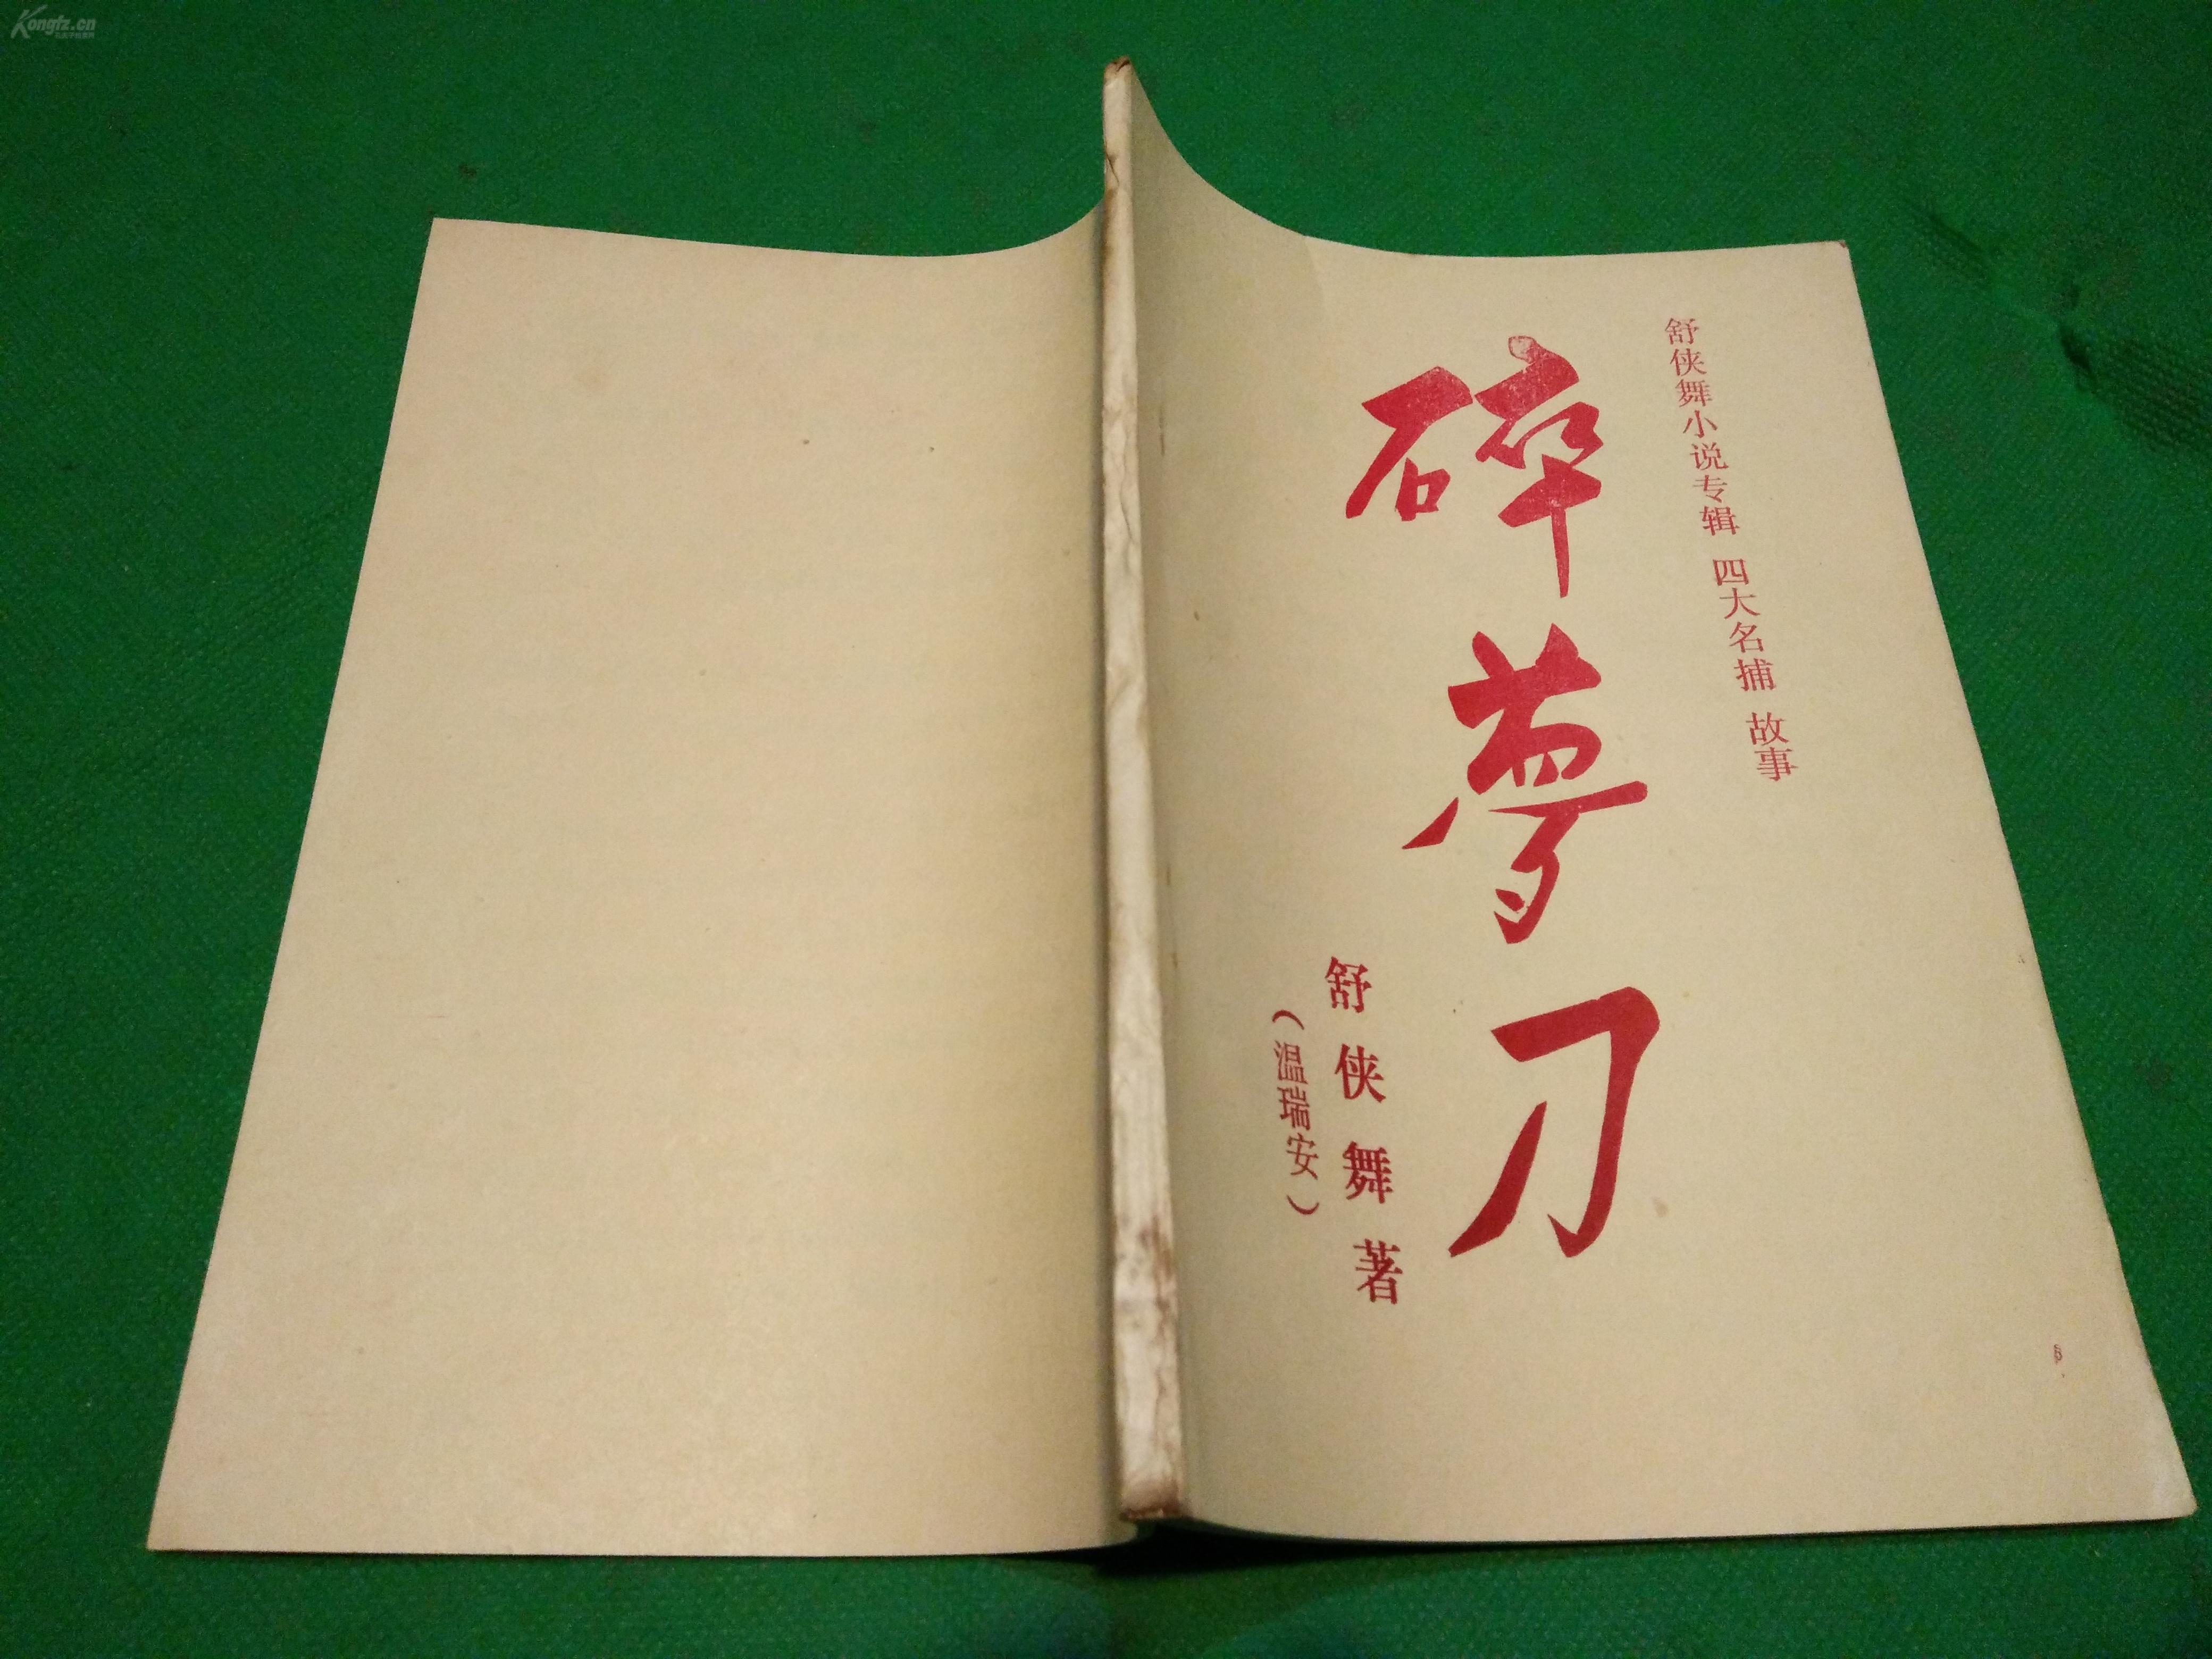 舒侠舞小说专辑 四大名捕 故事
碎夢刀
舒侠舞著
（温瑞安）
Kongfz.cn